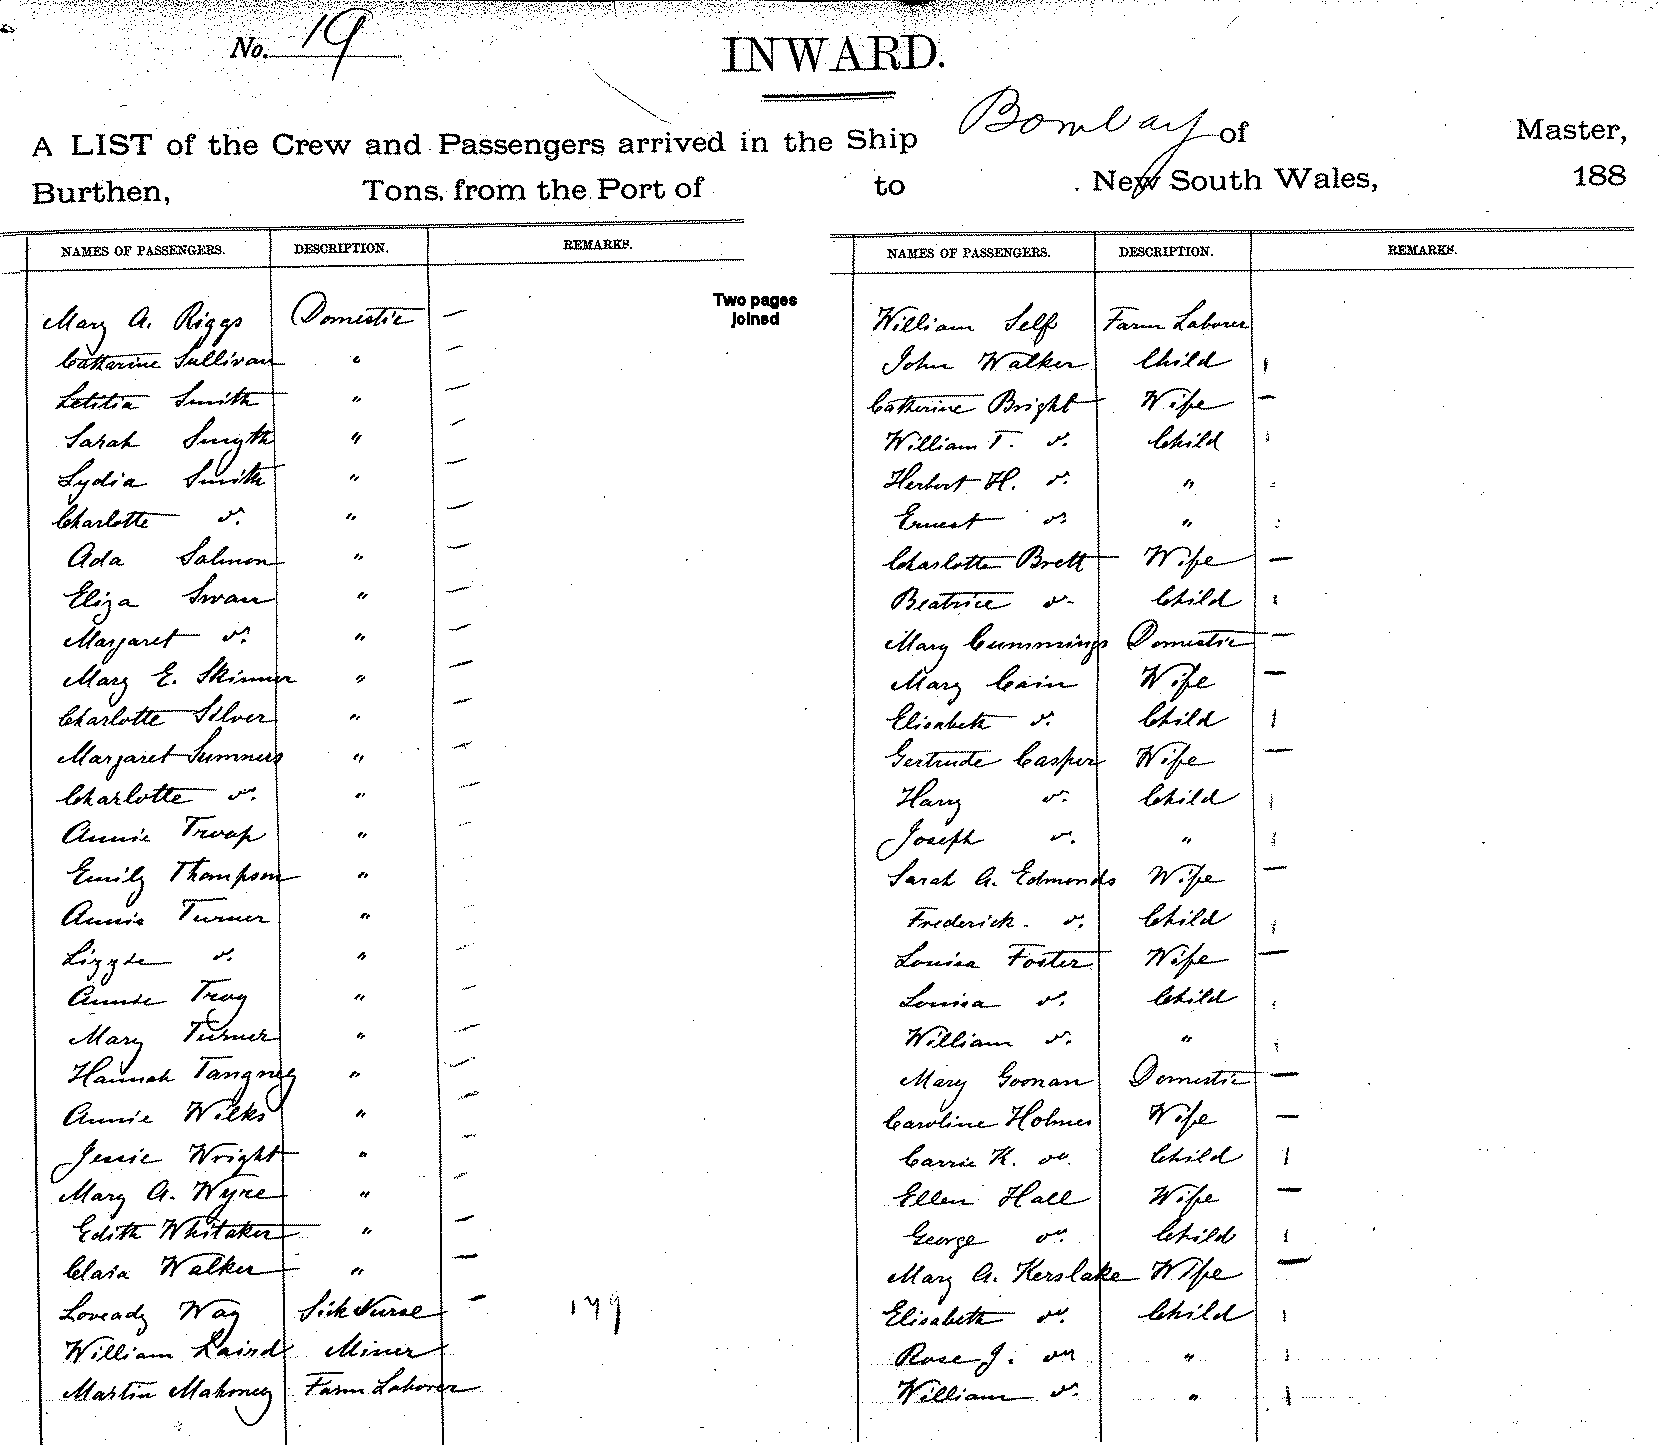 No. 19
INWARD.
A LIST of the Crew and Passengers arrived in the Ship Bombay of Master,
Burthen, Tons, from the Port of to New South Wales, 188
NAMES OF PASSENGERS. DESCRIPTION. REMARKS.
Two pages
joined
Mary A. Riggs Domestic —
Catharine Sullivan " —
Letitia Smith " —
Sarah Smyth " —
Lydia Smith " —
Charlotte do. " —
Ada Salmon " —
Eliza Swan " —
Margaret do. " —
Mary E. Skinner " —
Charlotte Silver " —
Margaret Summers " —
Charlotte do. " —
Annie Troop " —
Emily Thompson "
Annie Turner "
Lizzie do. " —
Annie Troy " —
Mary Turner " —
Hannah Tangney " —
Annie Wilks " —
Jessie Wright " —
Mary A. Wyne " —
Edith Whitaker " —
Clara Walker " —
Loveady Way Sick Nurse — 179
William Laird Miner
Martin Mahoney Farm Laborer
NAMES OF PASSENGERS. DESCRIPTION. REMARKS.
William Self Farm Laborer
John Walker Child
Catherine Bright Wife —
William T. do. Child
Herbert H. do. "
Ernest do. "
Charlotte Brett Wife —
Beatrice do. Child
Mary Cummings Domestic —
Mary Cain Wife —
Elisabeth do. Child
Gertrude Casper Wife —
Harry do. Child
Joseph do. "
Sarah A. Edmonds Wife —
Frederick do. Child
Louisa Foster Wife —
Louisa do. Child
William do. "
Mary Goonan Domestic —
Caroline Holmes Wife —
Carrie K. do. Child
Ellen Hall Wife —
George do. Child
Mary A. Kerslake Wife —
Elisabeth do. Child
Rose J. do. "
William do. "